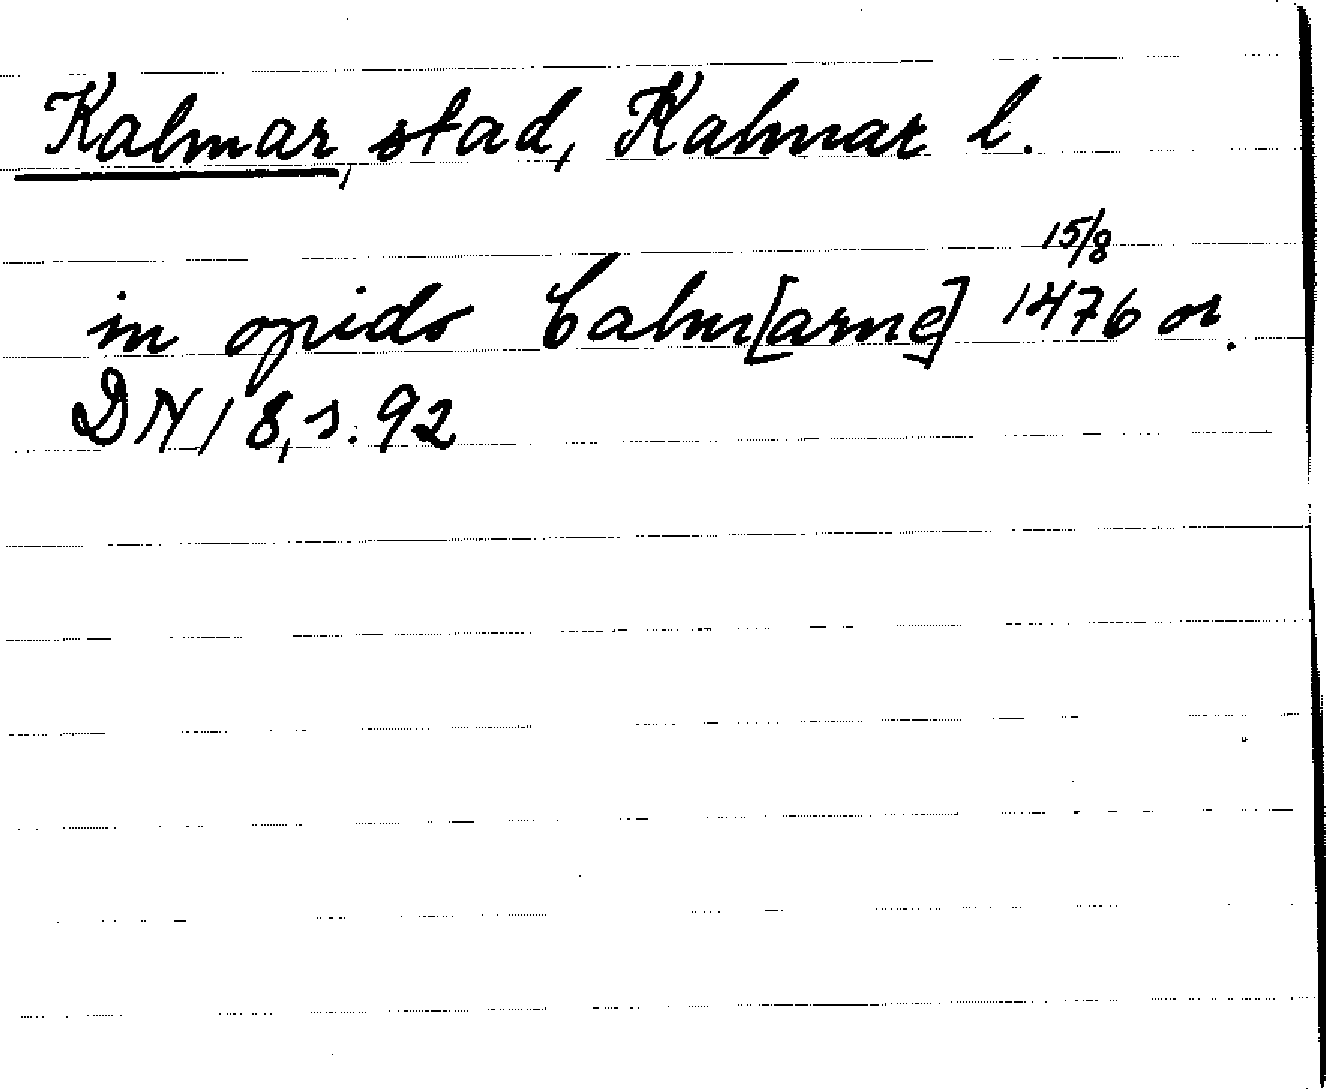 Kalmar, stad, Kalmar l.
in opido Calm[arne] 15/8 1476 or.
DN 18, s. 92